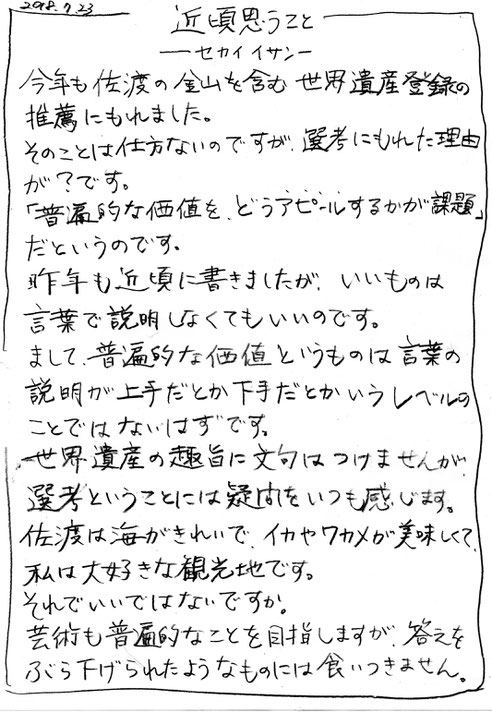 2018.7.23
近頃思うこと
―セカイイサン―
今年も佐渡の金山を含む世界遺産登録の
推薦にもれました。
そのことは仕方ないのですが、選考にもれた理由
が?です。
「普遍的な価値を、どうアピールするかが課題」
だというのです。
昨年も近頃に書きましたが、いいものは
言葉で説明しなくてもいいのです。
まして、普遍的な価値というものは言葉の
説明が上手だとか下手だとかいうレベルの
ことではないはずです。
世界遺産の趣旨に文句はつけませんが
選考ということには疑問をいつも感じます。
佐渡は海がきれいで、イカやワカメが美味しくて、
私は大好きな観光地です。
それでいいではないですか。
芸術も普遍的なことを目指しますが、答えを
ぶら下げられたようなものには食いつきません。